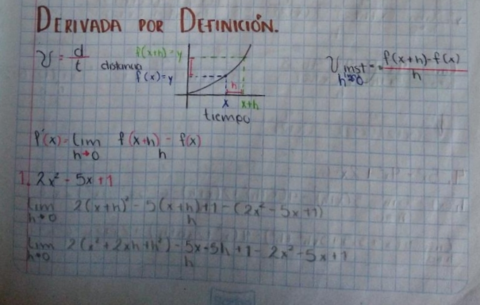 DERIVADA POR DEFINICIÓN.
V = d/t distancia f(x+h)=y
f(x)=y
h
x x+h
tiempo
V inst = f(x+h)-f(x)/h
h→0
f'(x)= lim h→0 f(x+h) - f(x)/h
1. 2x² - 5x+1
lim h→0 2(x+h)² - 5(x+h)+1-(2x² - 5x+1)/h
lim h→0 2(x²+2xh+h²) - 5x+5h+1-2x²-5x+1/h